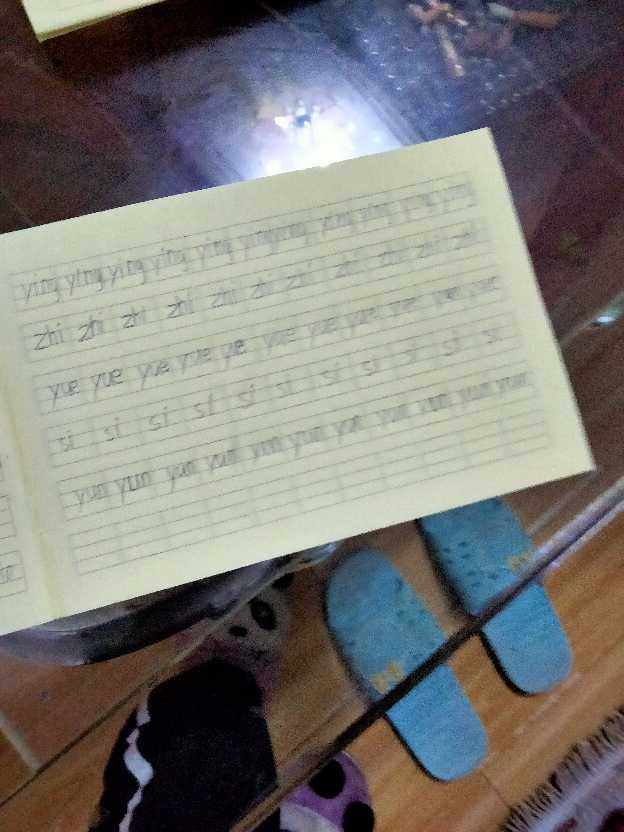 ying ying ying ying ying ying ying ying ying ying ying
zhi zhi zhi zhi zhi zhi zhi zhi zhi zhi zhi
yue yue yue yue yue yue yue yue yue yue yue
si si si si si si si si si si
yun yun yun yun yun yun yun yun yun yun yun